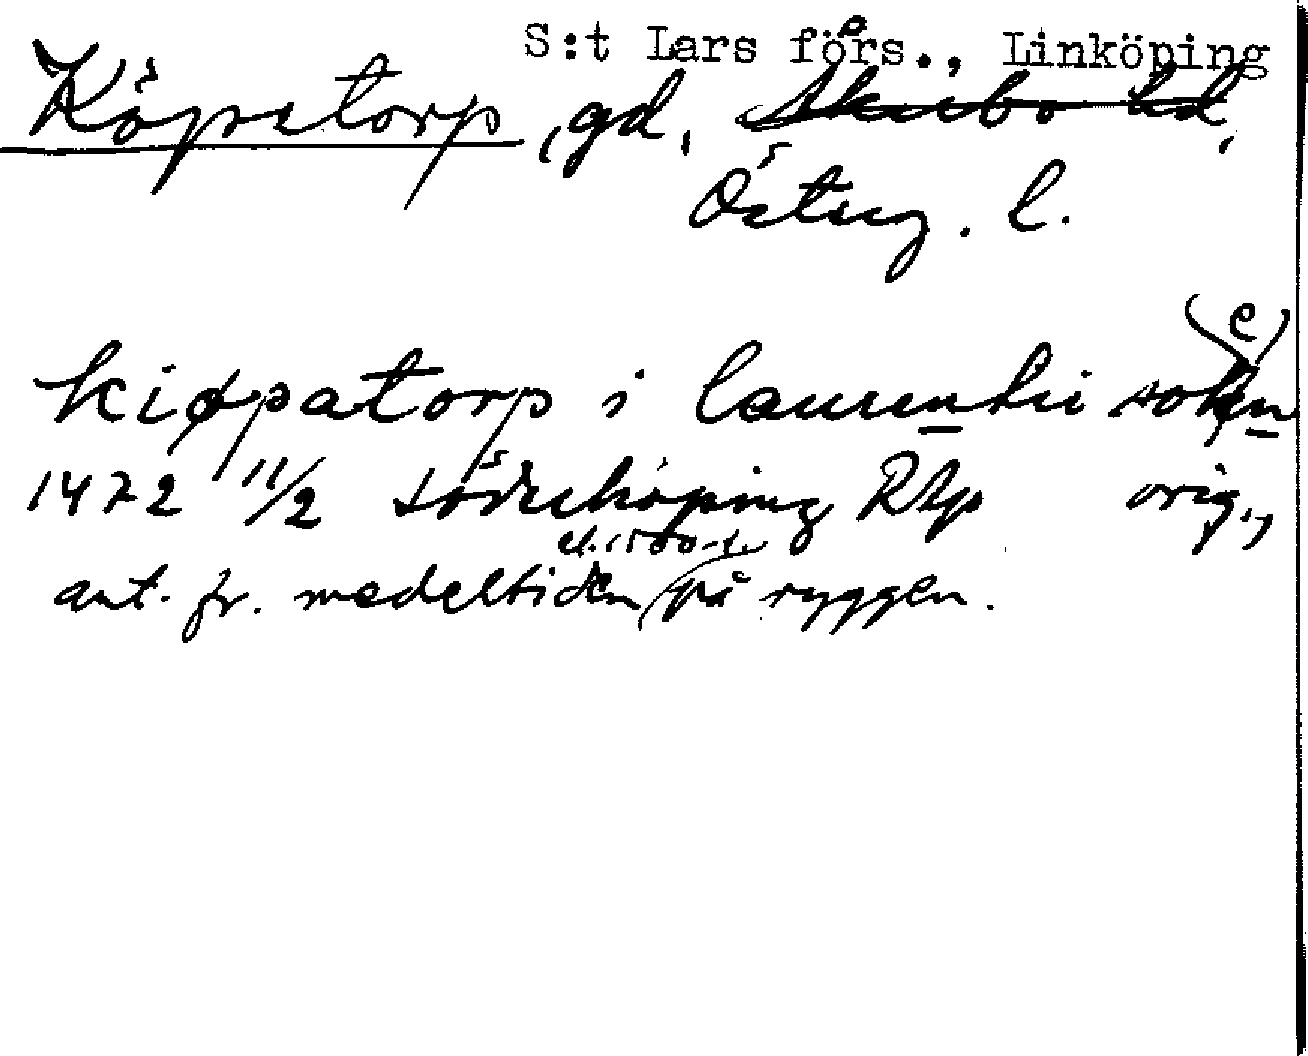 S:t Lars förs., Linköping
Köpetorp, gd, Åkerbo hd,
Österg. l.
kiøpatorp i laurentii sokn
1472 11/2 Söderköping RAp orig.,
el. 1500-t.
ant. fr. medeltiden på ryggen.